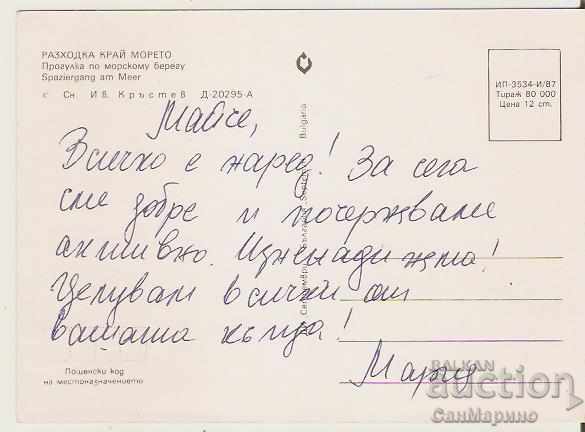 РАЗХОДКА КРАЙ МОРЕТО
Прогулка по морскому берегу
Spaziergang am Meer
Сн. Ив. Кръстев Д-20295-А
ИП-3534-И/87
Тираж 80 000
Цена 12 ст.
Майче,
Всичко е наред! За сега
сме добре и
Изненади жега!
Целувам всички от
вашата къща!
Мария
Bulgaria
Пощенски код
на местоназначението
BALKAN
auction
СанМарино